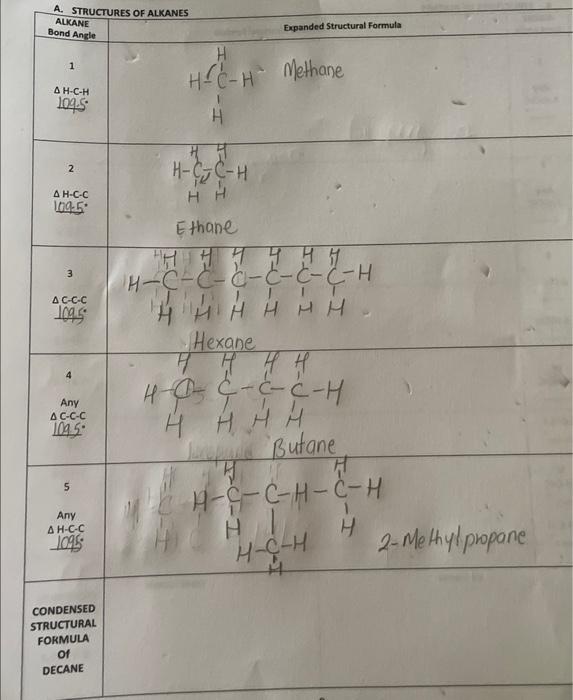 A. STRUCTURES OF ALKANES
ALKANE
Bond Angle
Expanded Structural Formula
1
Δ H-C-H
109.5°
H
H-C-H
H
Methane
2
Δ H-C-C
109.5°
H H
H-C-C-H
H H
Ethane
3
Δ C-C-C
109.5°
H H H H H H
H-C-C-C-C-C-C-H
H H H H H H
Hexane
4
Any
Δ C-C-C
109.5°
H H H H
H-C-C-C-C-H
H H H H
Butane
5
Any
Δ H-C-C
109.5°
H H
H-C-C-H-C-H
H H
H-C-H
H
2-Methylpropane
CONDENSED
STRUCTURAL
FORMULA
Of
DECANE